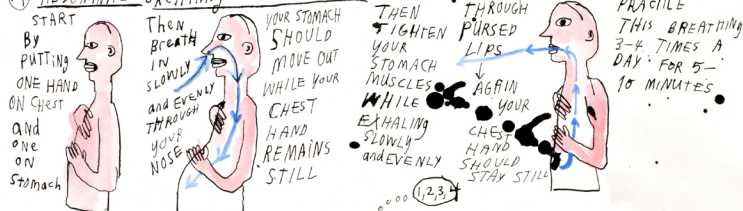 ① ABDOMINAL BREATHING
START
By
PUTTING
ONE HAND
ON CHEST
and
one
on
Stomach
Then
Breath
IN
SLOWLY
and EVENLY
THROUGH
YOUR
NOSE
YOUR STOMACH
SHOULD
MOVE OUT
WHILE YOUR
CHEST
HAND
REMAINS
STILL
THEN
TIGHTEN
YOUR
STOMACH
MUSCLES
WHILE
EXHALING
SLOWLY
and EVENLY
THROUGH
PURSED
LIPS
AGAIN
YOUR
CHEST
HAND
SHOULD
STAY STILL
1,2,3,4
PRACTICE
THIS BREATHING
3-4 TIMES A
DAY FOR 5-
10 MINUTES